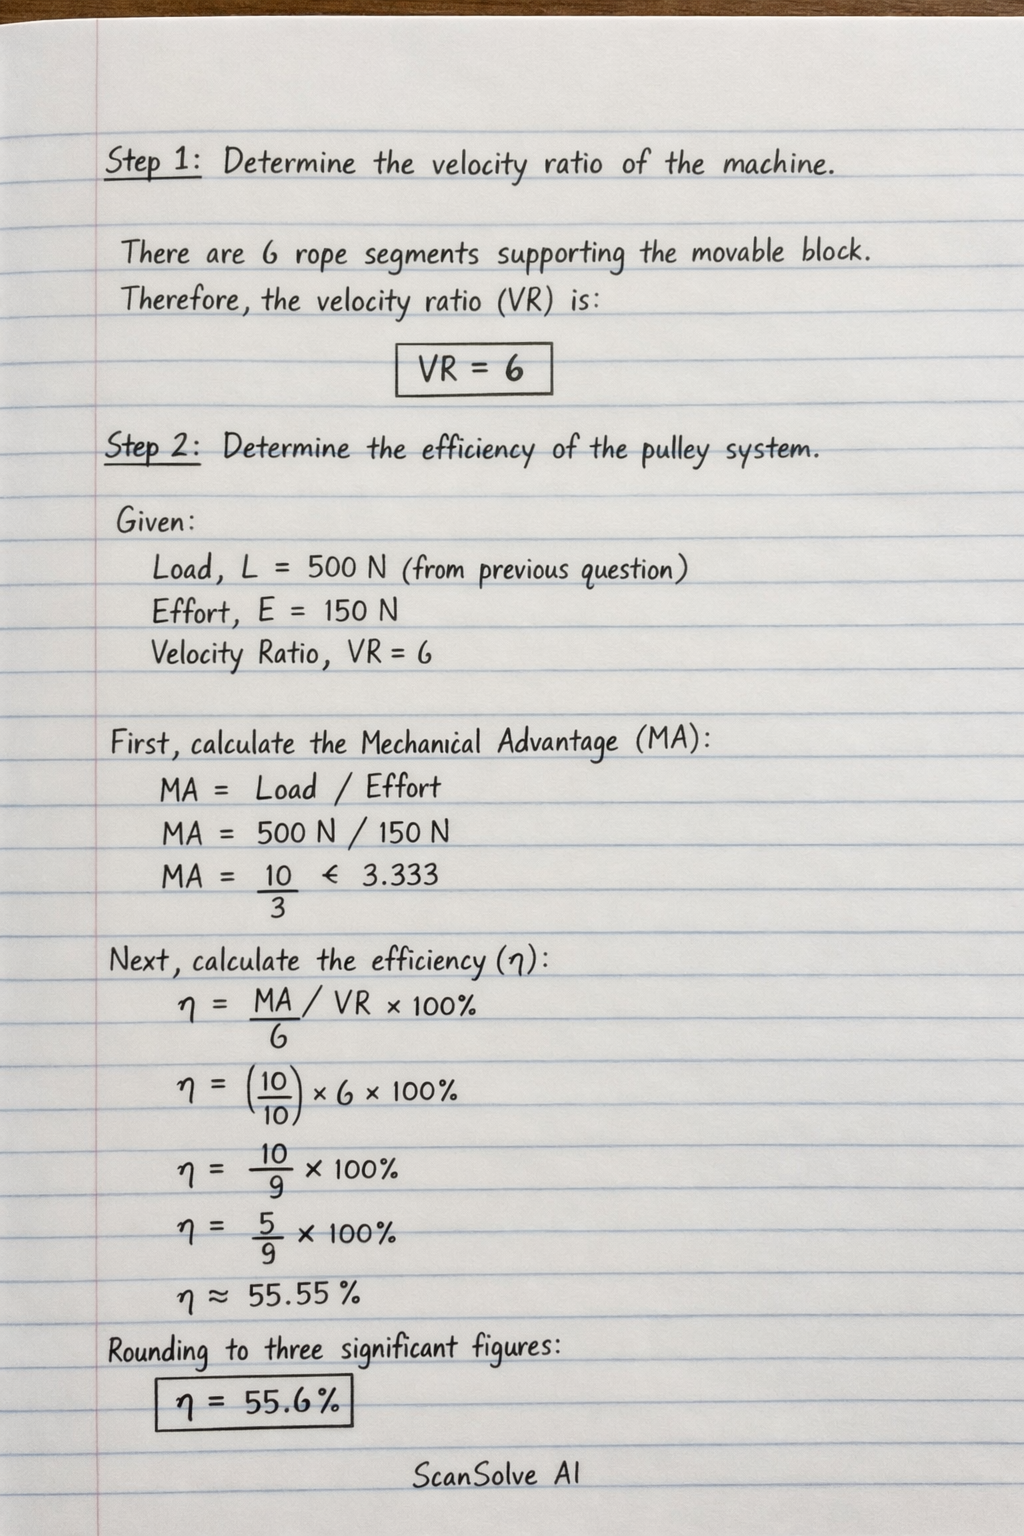 Step 1: Determine the velocity ratio of the machine.
There are 6 rope segments supporting the movable block.
Therefore, the velocity ratio (VR) is:
VR = 6
Step 2: Determine the efficiency of the pulley system.
Given:
Load, L = 500 N (from previous question)
Effort, E = 150 N
Velocity Ratio, VR = 6
First, calculate the Mechanical Advantage (MA):
MA = Load / Effort
MA = 500 N / 150 N
MA = 10 € 3.333
3
Next, calculate the efficiency (η):
η = MA / VR × 100%
6
η = (10) × 6 × 100%
10
η = 10 × 100%
9
η = 5 × 100%
9
η ≈ 55.55 %
Rounding to three significant figures:
η = 55.6%
ScanSolve AI